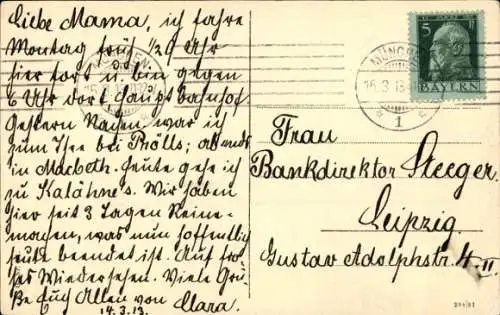 Liebe Mama, ich fahre
Montag früh ½9 Uhr
hier fort u. bin gegen
6 Uhr dort Hauptbahnhof.
Gestern Nachm. war ich
zum Thee bei Prölls; abends
in Macbeth. Heute gehe ich
zu Kalähne's. Wir haben
hier seit 3 Tagen Reine-
machen, was nun hoffentlich
heute beendet ist. Auf fro-
hes Wiedersehen. Viele Grü-
ße Euch Allen von Clara.
14.3.13.
MÜNCHEN
1
5
BAYERN
Frau
Bankdirektor Steeger
Leipzig.
Gustav Adolphstr. 4 II